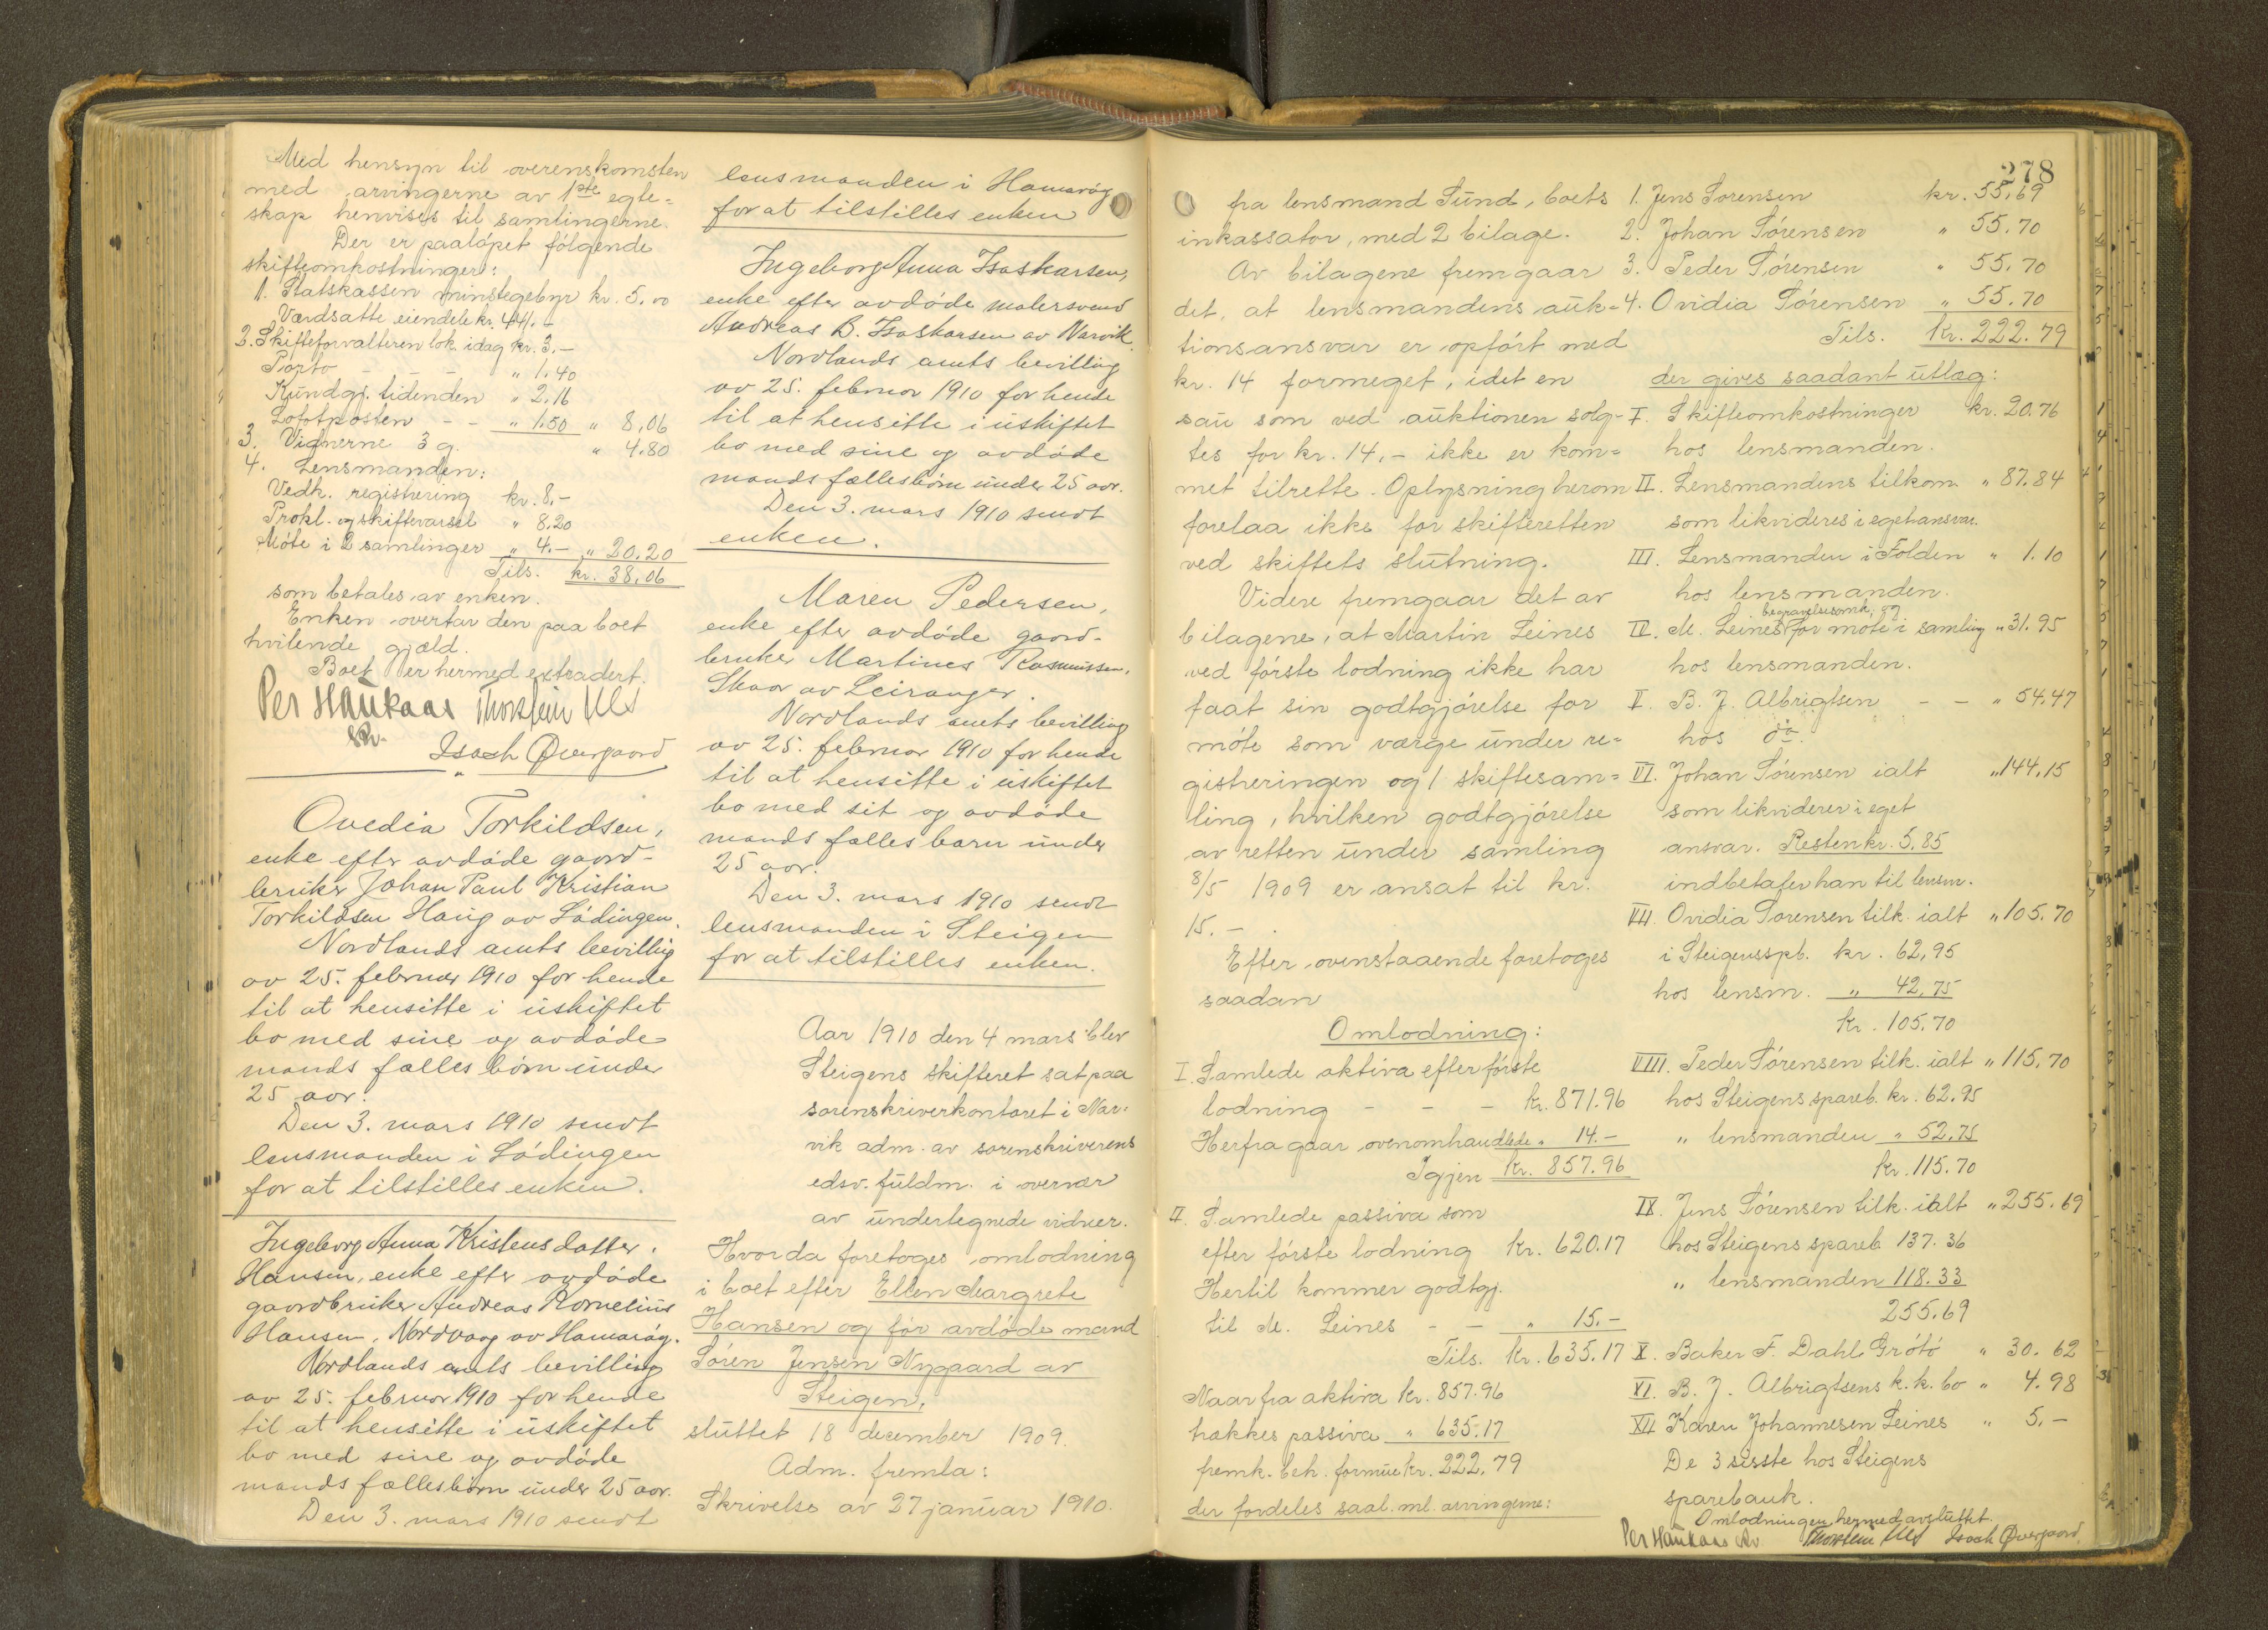 Med hensyn til overenskomsten
med arvingerne av 1ste egte=
skap henvises til samlingerne.
Der er paaløpet følgende
skifteomkostninger:
1. Statskassen minstegebyr kr. 5,00
Værdsatte eiendele kr. 441.-
2. Skifteforvalteren lok. idag kr. 3.-
Porto - - - " 1.40
Kundgj. tidenden " 2,16
Lofotposten - - " 1.50 " 8,06
3. Vidnerne 3 g. " 4.80
4. Lensmanden:
Vedk. registrering kr. 8,-
Prokl. og skiftevarsel " 8,20
Møte i 2 samlinger " 4.- " 20.20
Tils. kr. 38,06
som betales av enken.
Enken overtar den paa boet
hvilende gjæld.
Boet er hermed extradert.
Per Haukaas Thorstein
Isach Øvergaard
Ovedia Torkildsen,
enke efter avdøde gaard-
bruker Johan Paul Kristian
Torkildsen Haug av Lødingen.
Nordlands amts bevilling
av 25. februar 1910 for hende
til at hensitte i uskiftet
bo med sine og avdøde
mands fælles børn under
25 aar.
Den 3. mars 1910 sendt
lensmanden i Lødingen
for at tilstilles enken.
Ingeborg Anna Kristensdatter
Hansen, enke efter avdøde
gaardbruker Andreas Kornelius
Hansen, Nordvaag av Hamarøy.
Nordlands amts bevilling
av 25. februar 1910 for hende
til at hensitte i uskiftet
bo med sine og avdøde
mands fælles børn under 25 aar.
Den 3. mars 1910 sendt
lensmanden i Hamarøy
for at tilstilles enken
Ingeborg Anna Isaksen,
enke efter avdøde malersvend
Andreas B. Isaksen av Narvik.
Nordlands amts bevilling
av 25. februar 1910 for hende
til at hensitte i uskiftet
bo med sine og avdøde
mands fælles børn under 25 aar.
Den 3. mars 1910 sendt
enken.
Maren Pedersen,
enke efter avdøde gaard-
bruker Martines Rasmussen,
Skaar av Leiranger.
Nordlands amts bevilling
av 25. februar 1910 for hende
til at hensitte i uskiftet
bo med sit og avdøde
mands fælles barn under
25 aar.
Den 3. mars 1910 sendt
lensmanden i Steigen
for at tilstilles enken.
Aar 1910 den 4 mars blev
Steigens skifteret sat paa
sorenskriverkontoret i Nar-
vik adm. av sorenskriverens
edsv. fuldm. i overvær
av undertegnede vidner.
Hvor da foretoges omlodning
i boet efter Ellen Margrete
Hansen og før avdøde mand
Søren Jensen Nygaard av
Steigen,
sluttet 18 december 1909.
Adm. fremla:
Skrivelse av 27 januar 1910.
278
fra lensmand Sund, boets
inkassator, med 2 bilage.
Av bilagene fremgaar
det, at lensmandens auk-
tionsansvar er opført med
kr. 14 formeget, idet en
sau som ved auktionen solg-
tes for kr. 14,- ikke er kom=
met tilrette. Oplysning herom
forelaa ikke for skifteretten
ved skiftets slutning.
Videre fremgaar det av
bilagene, at Martin Leines
ved første lodning ikke har
faat sin godtgjørelse for
møte som værge under re=
gistreringen og 1 skiftesam=
ling, hvilken godtgjørelse
av retten under samling
8/5 1909 er ansat til kr.
15.-.
Efter ovenstaaende foretoges
saadan
Omlodning:
I. Samlede aktiva efter første
lodning - - - kr. 871.96
Herfra gaar ovenomhandlede " 14.-
Igjen kr. 857.96
II. Samlede passiva som
efter første lodning kr. 620.17
Hertil kommer godtgj.
til M. Leines - - " 15.-
Tils. kr. 635.17
Naar fra aktiva kr. 857.96
trækkes passiva " 635.17
fremk. beh. formue kr. 222,79
der fordeles saal. ml. arvingerne:
1. Jens Sørensen kr. 55,69
2. Johan Sørensen " 55.70
3. Peder Sørensen " 55.70
4. Ovidia Sørensen " 55.70
Tils. kr. 222.79
der gives saadant utlæg:
I. Skifteomkostninger kr. 20.76
hos lensmanden.
II. Lensmandens tilkom. " 87.84
som likvideres i eget ansvar.
III. Lensmanden i Folden " 1.10
hos lensmanden.
begravelsesomk. og
IV. M. Leines for møte i samling " 31.95
hos lensmanden.
V. B. J. Albrigtsen - - " 54.47
hos do.
VI. Johan Sørensen ialt " 144.15
som likviderer i eget
ansvar. Resten kr. 5,85
indbetaler han til lensm.
VII. Ovidia Sørensen tilk. ialt " 105.70
i Steigens spb. kr. 62,95
hos lensm. " 42,75
kr. 105.70
VIII. Peder Sørensen tilk. ialt " 115,70
hos Steigens spareb. kr. 62.95
" lensmanden " 52.75
kr. 115.70
IX. Jens Sørensen tilk. ialt " 255.69
hos Steigens spareb. 137.36
" lensmanden 118.33
255.69
X. Baker F. Dahl Grøtø " 30.62
XI. B. J. Albrigtsens k.k. bo " 4.98
XII Karen Johannesen Leines " 5.-
De 3 sisste hos Steigens
sparebank.
Omlodningen hermed avsluttet.
Per Haukaas Thorstein Isach Øvergaard.